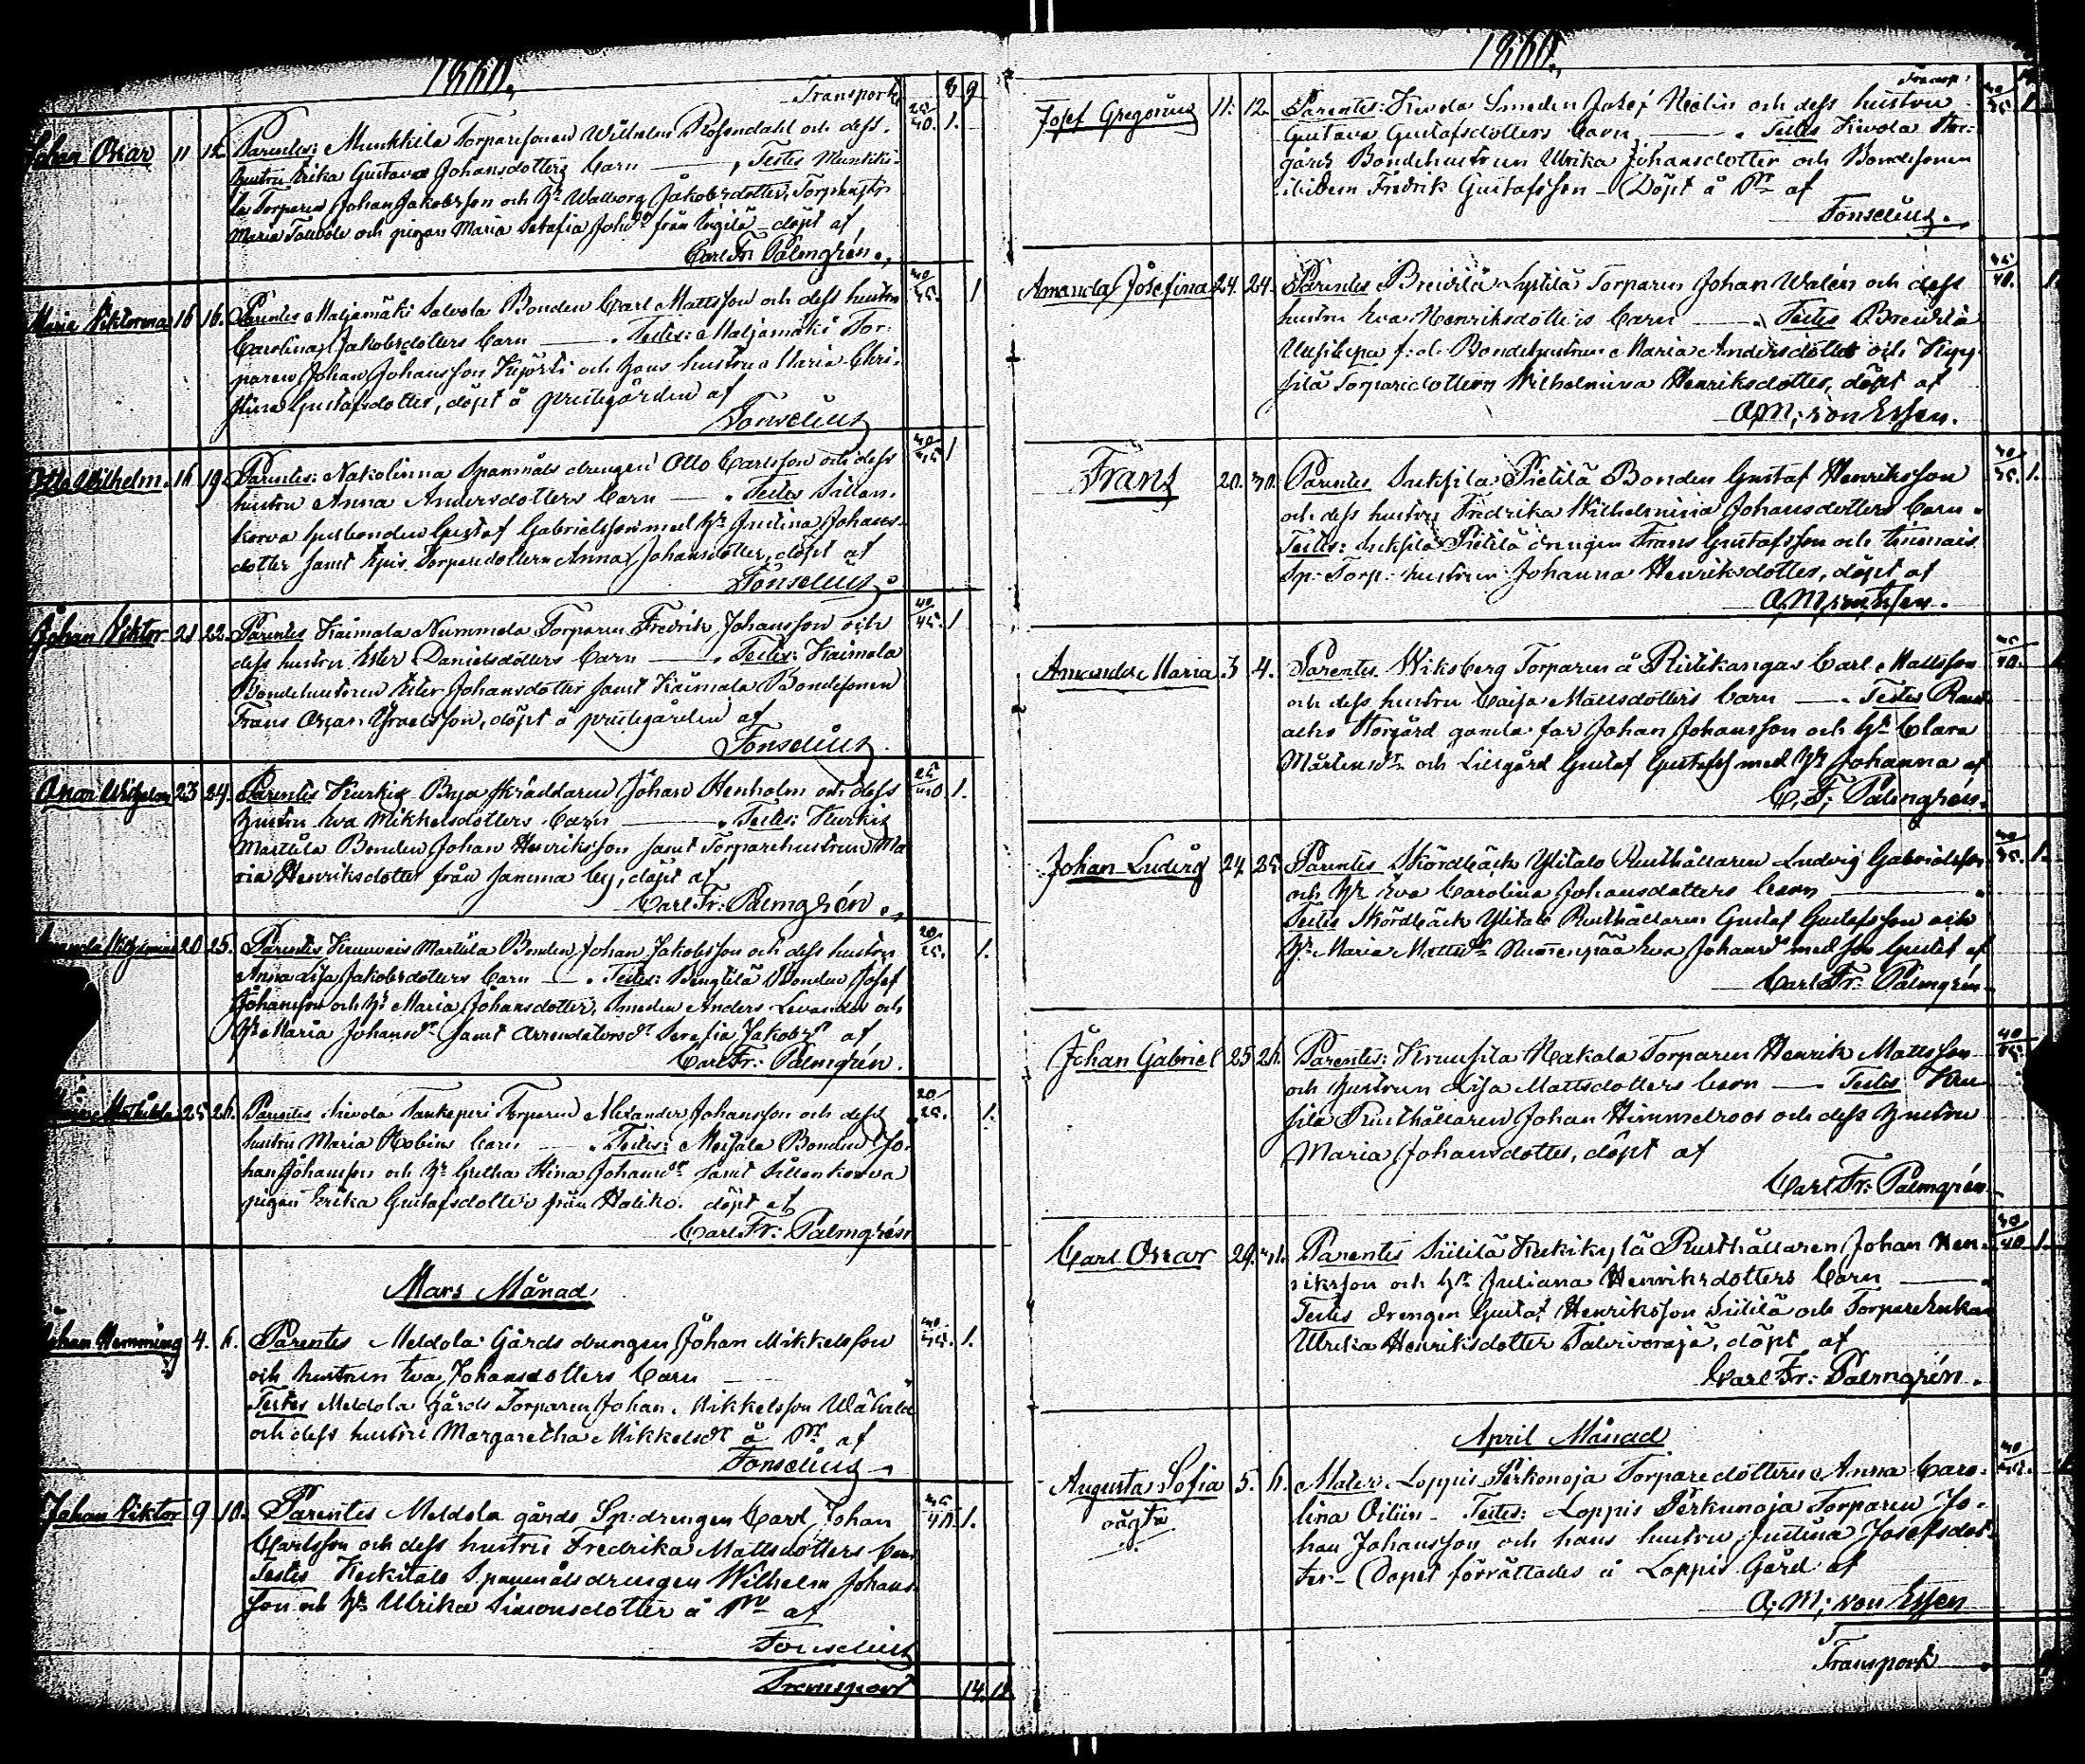 1860.
Transport 8 9
Johan Oscar 11 12. Parentes: Munkkila Torparesonen Wilhelm Rosendahl och dess 25/30. 1.
hustru Erika Gustava Johansdotters barn — , Testes Munkki-
la Torparen Johan Jakobsson och Hu Walborg Jakobsdotter, Torp.
Maria och pigan Maria Serafia Johsdr från döpt af
Carl Fr. Palmgrén.
Maria Viktorina 16 16. Parentes Maljamäki Salvola Bonden Carl Mattsson och dess hustru 1
Carolina Jakobsdotters barn — . Testes: Maljamäki Tor-
paren Johan Johansson Kyörti och hans hustru Maria Chri-
stina Gustafsdotter, döpt å prestgården af
Fonselius
Otto Wilhelm. 16 19 Parentes: Nakolinna Spanmåls drengen Otto Carlsson och dess 1
hustru Anna Andersdotters barn — . Testes Sillan-
korva Husbonden Gustaf Gabrielsson med Hu Justina Johans-
dotter samt Torparedottern Anna Johansdotter, döpt af
Fonselius.
Johan Viktor 21 22. Parentes Kaimala Nummela Torparen Fredrik Johansson och 40/45. 1
dess hustru Ester Danielsdotters barn — . Testes: Kaimala
Bondehustrun Ester Johansdotter samt Kaimala Bondesonen
Frans Oscar Israelsson, döpt å prestgården af
Fonselius.
Oscar Wilhelm 23 24. Parentes Kurkis Bya skräddaren Johan Stenholm och dess 25/30 1.
hustru Eva Mikkelsdotters barn — . Testes: Kurkis
Marttila Bonden Johan Henriksson samt Torparehustrun Ma-
ria Henriksdotter från samma by, döpt af
Carl Fr: Palmgrén.
Amanda Wilhelmina 20 25. Parentes Marttila Bonden Johan Jakobsson och dess hustru 20/25. 1.
Anna Lisa Jakobsdotters barn — . Testes: Bengtilä Bonden Josef
Johansson och Hu Maria Johansdotter, Smeden Anders Levander och
Hu Maria Johansdr samt Arrendatorsdr Serafia Jakobsdr af
Carl Fr: Palmgrén.
Mathilda 25 26. Parentes Torparen Alexander Johansson och dess 20/25. 1.
hustru Maria Robins barn — . Testes: Meisala Bonden Jo-
han Johansson och Hu Gretha Stina Johansdr samt Sillankorva
pigan Erika Gustafsdotter från Haliko. döpt af
Carl Fr: Palmgrén
Mars Månad
Johan Hemming 4. 6. Parentes Meldola Gårds drengen Johan Mikkelsson 1.
och hustrun Eva Johansdotters barn —
Testes Meldola Gårds Torparen Johan Mikkelsson
och dess hustru Margaretha Mikkelsdr å Pr. af
Fonselius
Johan Viktor 9 10. Parentes Meldola gårds Sp: drengen Carl Johan 1.
Carlsson och dess hustru Fredrika Mattsdotters barn
Testes Keskitalo Spanmålsdrengen Wilhelm Johans-
son och Hu Ulrika Simonsdotter å Pr. af
Fonselius
Transport 14. 12.
1860.
Transp:
Josef Gregorius 11. 12. Parentes: Kevola Smeden Josef Helin och dess hustru 1
Gustava Gustafsdotters barn — . Testes Kevola Stor-
gårds Bondehustrun Ulrika Johansdotter och Bondesonen
ibidem Fredrik Gustafsson — Döpt å Pr. af
Fonselius.
Amanda Josefina 24. 24. Parentes Torparen Johan Walén och dess 1.
hustru Eva Henriksdotters barn — . Testes
f: d: Bondehustrun Maria Andersdotter och
Torparedottern Wilhelmina Henriksdotter, döpt af
A: M: von Essen.
Frans 20. 30. Parentes Suksila Pietilä Bonden Gustaf Henriksson 1.
och dess hustru Fredrika Wilhelmina Johansdotters barn.
Testes: Suksila Pietilä drengen Frans Gustafsson och
Sp: Torp: hustrun Johanna Henriksdotter, döpt af
A. M. von Essen.
Amanda Maria 3 4. Parentes Wiksberg Torparen å Ristikangas Carl Mattsson
och dess hustru Caisa Mattsdotters barn — . Testes
Storgård gamla far Johan Johansson och Hu Clara
Mårtensdr och Lillgård Gustaf Gustafss med Hu Johanna af
C. F: Palmgrén.
Johan Ludvig 24. 25. Parentes Skördbäck Ylitalo Rusthållaren Ludvig Gabrielsson 1.
och Hu Eva Carolina Johansdotters barn —
Testes Skördbäck Ylitalo Rusthållaren Gustaf Gustafsson och
Hu Maria Mattsdr Eva Johansdr med son Gustaf af
Carl Fr: Palmgrén.
Johan Gabriel 25 26. Parentes: Kruusila Torparen Henrik Mattsson
och hustrun Lisa Mattsdotters barn — Testes Kru-
sila Rusthållaren Johan Himmelroos och dess hustru
Maria Johansdotter, döpt af
Carl Fr: Palmgrén
Carl Oscar 29. 31. Parentes Siitilä Keskikylä Rusthållaren Johan Hen- 30/40 1.
riksson och Hu Juliana Henriksdotters barn —
Testes drengen Gustaf Henriksson Siitilä och Torpareenkan
Ulrika Henriksdotter Talvivoraja, döpt af
Carl Fr: Palmgrén.
April Månad
Augusta Sofia 5. 6. Mater Loppis Perkonoja Torparedottern Anna Caro-
oägta lina Oitiin. Testes: Loppis Perkunoja Torparen Jo-
han Johansson och hans hustru Justina Josefsdot-
ter — Dopet förrättades å Loppis Gård af
A: M: von Essen
Transport